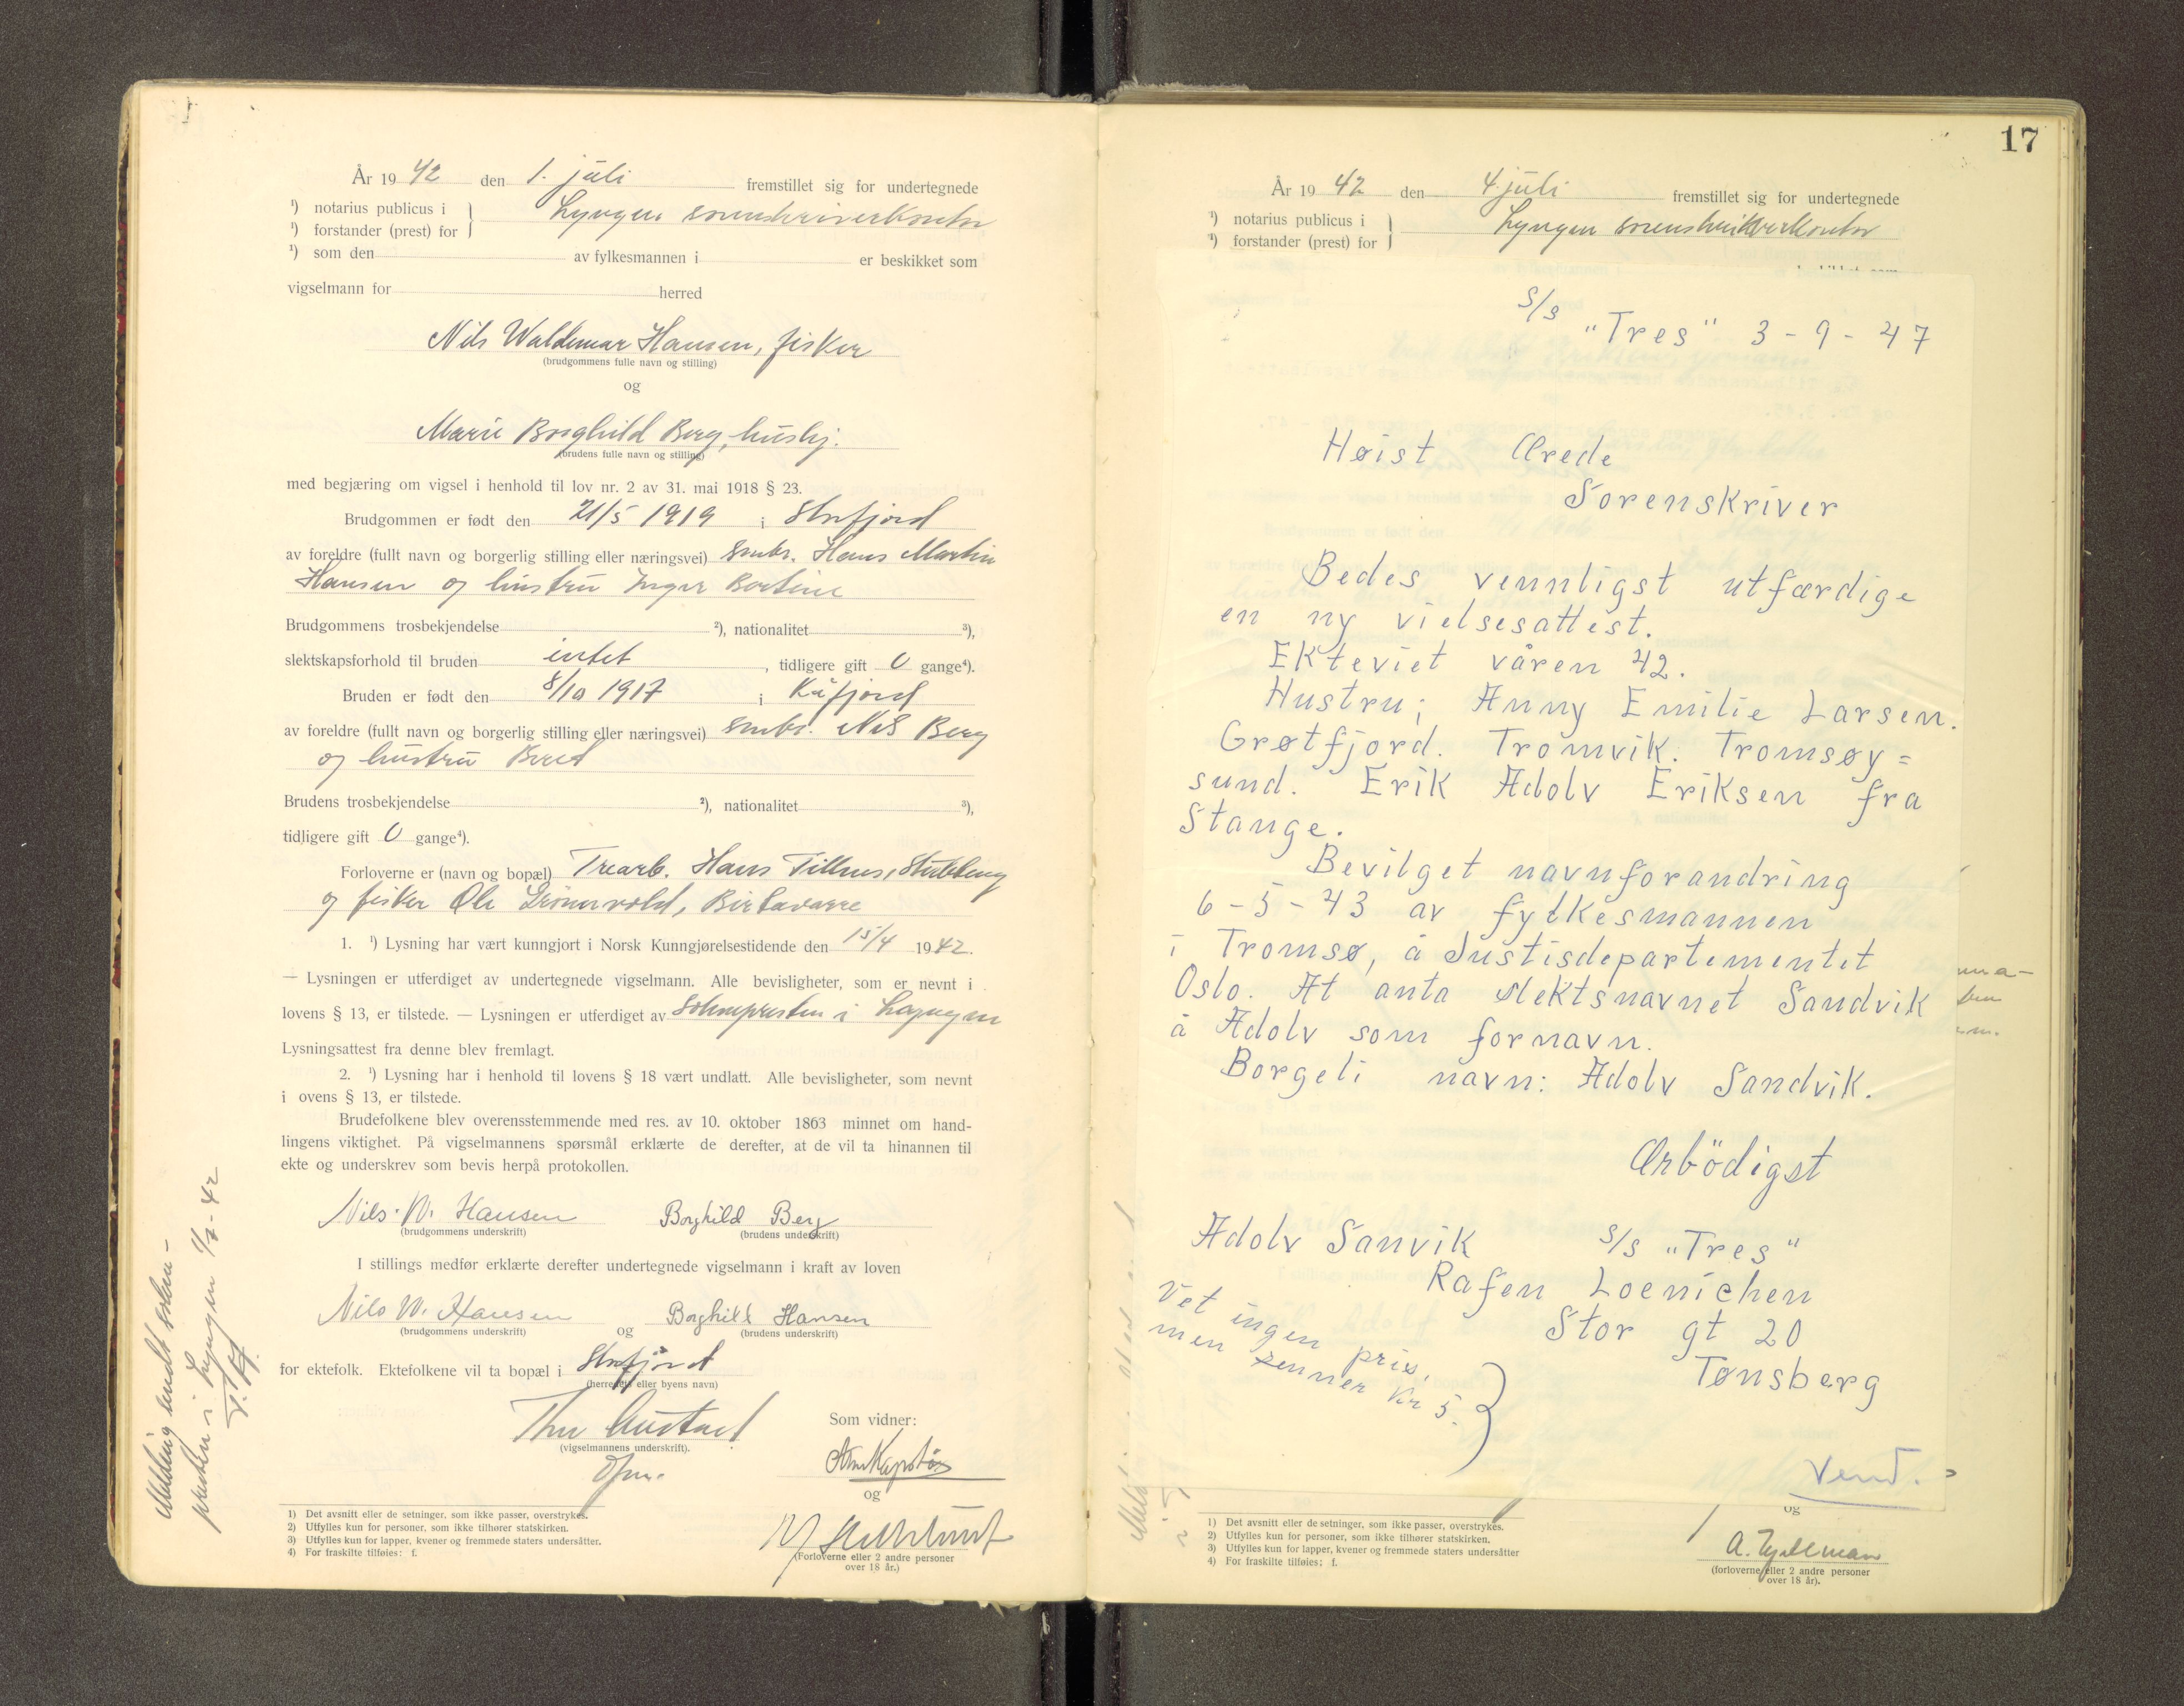 År 19 42 den 1. juli fremstillet sig for undertegnede
¹) notarius publicus i
¹) forstander (prest) for
Lyngen sorenskriverkontor
¹) som den av fylkesmannen i er beskikket som
vigselmann for herred
Nils Waldemar Hansen, fisker
(brudgommens fulle navn og stilling)
og
Marie Borghild Berg, hushj.
(brudens fulle navn og stilling)
med begjæring om vigsel i henhold til lov nr. 2 av 31. mai 1918 § 23.
Brudgommen er født den 21/5 1919 i Storfjord
av foreldre (fullt navn og borgerlig stilling eller næringsvei) småbr. Hans Martin
Hansen og hustru Inger Bertine
Brudgommens trosbekjendelse ²), nationalitet ³),
slektskapsforhold til bruden intet, tidligere gift 0 gange⁴).
Bruden er født den 8/10 1917 i Kåfjord
av foreldre (fullt navn og borgerlig stilling eller næringsvei) småbr. Nils Berg
og hustru Berit
Brudens trosbekjendelse ²), nationalitet ³),
tidligere gift 0 gange⁴).
Forloverne er (navn og bopæl) Trearb. Hans
og fisker Ole Grønvold, Birtavarre
1. ¹) Lysning har vært kunngjort i Norsk Kunngjørelsestidende den 15/4 1942.
— Lysningen er utferdiget av undertegnede vigselmann. Alle bevisligheter, som er nevnt i
lovens § 13, er tilstede. — Lysningen er utferdiget av Soknepresten i Lyngen
Lysningsattest fra denne blev fremlagt.
2. ¹) Lysning har i henhold til lovens § 18 vært undlatt. Alle bevisligheter, som nevnt
i ovens § 13, er tilstede.
Brudefolkene blev overensstemmende med res. av 10. oktober 1863 minnet om hand-
lingens viktighet. På vigselmannens spørsmål erklærte de derefter, at de vil ta hinannen til
ekte og underskrev som bevis herpå protokollen.
Nils. W. Hansen Borghild Berg
(brudgommens underskrift) (brudens underskrift)
I stillings medfør erklærte derefter undertegnede vigselmann i kraft av loven
Nils W. Hansen og Borghild Hansen
(brudgommens underskrift) (brudens underskrift)
for ektefolk. Ektefolkene vil ta bopæl i Storfjord
(herredets eller byens navn)
Som vidner:
(vigselmannens underskrift).
og
(Forloverne eller 2 andre personer
over 18 år.)
1) Det avsnitt eller de setninger, som ikke passer, overstrykes.
2) Utfylles kun for personer, som ikke tilhører statskirken.
3) Utfylles kun for lapper, kvener og fremmede staters undersåtter.
4) For fraskilte tilføies: f.
Melding sendt sokne-
presten i Lyngen 1/7-42
17
År 19 42 den 4 juli fremstillet sig for undertegnede
¹) notarius publicus i
¹) forstander (prest) for
Lyngen sorenskriverkontor
S/S "Tres" 3-9-47
Høist Ærede
Sorenskriver
Bedes vennligst utfærdige
en ny vielsesattest.
Ekteviet våren 42.
Hustru; Anny Emilie Larsen.
Grøtfjord. Tromvik. Tromsøy=
sund. Erik Adolv Eriksen fra
Stange.
Bevilget navnforandring
6-5-43 av fylkesmannen
i Tromsø, å Justisdepartementet
Oslo. At anta slektsnavnet Sandvik
å Adolv som fornavn.
Borgeli navn: Adolv Sandvik.
Ærbödigst
Adolv Sanvik S/S "Tres"
Rafen Loenichen
Stor gt 20
Tønsberg
Vet ingen pris,
men senner Kr 5.
Vend.
og
(forloverne eller 2 andre personer
over 18 år).
1) Det avsnitt eller de setninger, som ikke passer, overstrykes.
2) Utfylles kun for personer, som ikke tilhører statskirken.
3) Utfylles kun for lapper, kvener og fremmede staters undersåtter
4) For fraskilte tilføies; f.